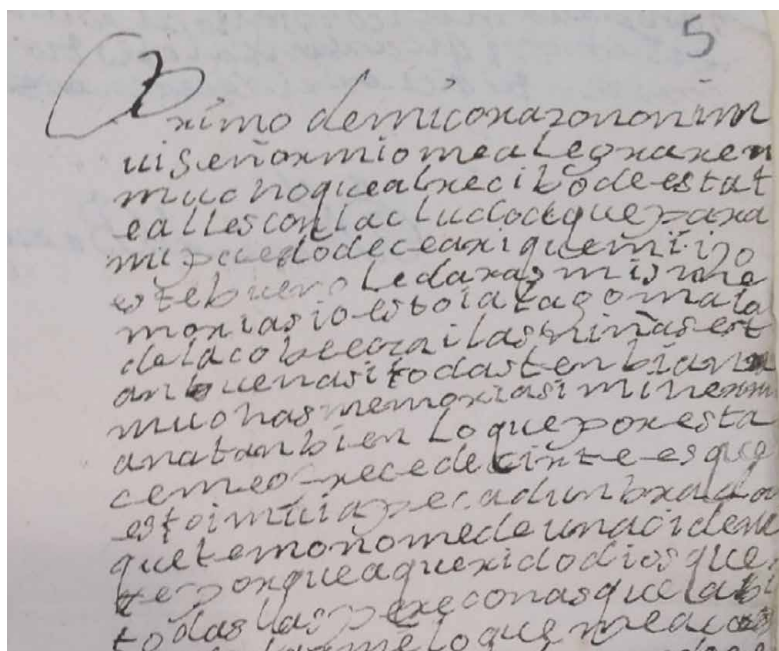 5
Primo demicorazononinm
uiseñormiomealegraxen
muchoquealrecibodeestat
eallesconlacludodequepaxa
mipuedodeceariquemiijo
estebuenoledarasmisme
moriasioestoiatagomala
delacobecailasniñasest
anbuenasitodastenbian
muchasmemoriasimiherm
anatanbien Loqueporesta
cemeofrecedecirteesque
estoimuiapecadunbrada
quetemoñomedeunacidene
teporqueaqueridodiosque
todaslasperceconasquelabi
loquemedecia